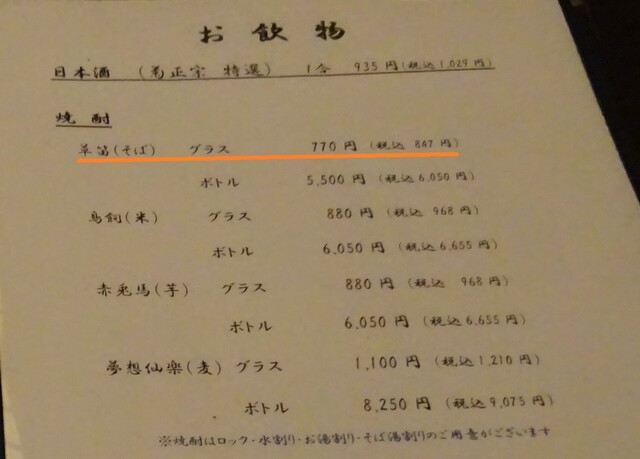 お飲物
日本酒 (菊正宗 特選) 1合 935円(税込1,029円)
焼酎
草笛(そば) グラス 770円 (税込 847円)
ボトル 5,500円 (税込6,050円)
鳥飼(米) グラス 880円 (税込 968円)
ボトル 6,050円 (税込6,655円)
赤兎馬(芋) グラス 880円 (税込 968円)
ボトル 6,050円 (税込6,655円)
夢想仙楽(麦) グラス 1,100円 (税込1,210円)
ボトル 8,250円 (税込9,075円)
※焼酎はロック・水割り・お湯割り・そば湯割りのご用意がございます